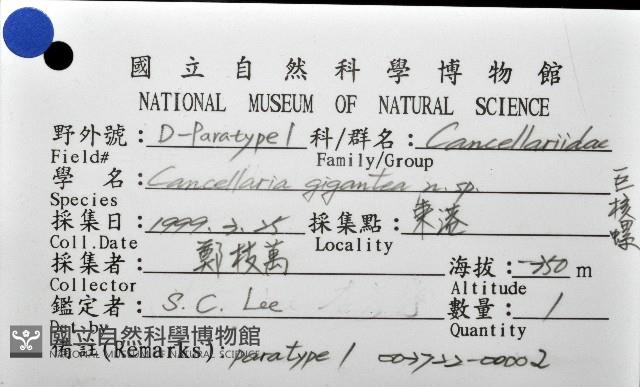 國立自然科學博物館
NATIONAL MUSEUM OF NATURAL SCIENCE
野外號：D-Paratype 1 科/群名：Cancellariidae
Field# Family/Group
學 名：Cancellaria gigantea n. sp. 巨核螺
Species
採集日：1999.3.25 採集點：東港
Coll.Date Locality
採集者：鄭枝萬 海拔：-250 m
Collector Altitude
鑑定者：S.C. Lee 數量：1
Det.by Quantity
備註(Remarks)：paratype 1
國立自然科學博物館
NATIONAL MUSEUM OF NATURAL SCIENCE